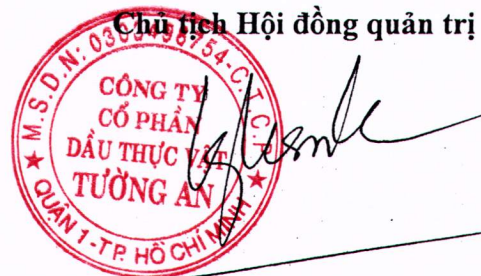 Chủ tịch Hội đồng quản trị
M.S.D.N: 0303498754-C.T.C.P
CÔNG TY
CỔ PHẦN
DẦU THỰC VẬT
TƯỜNG AN
QUẬN 1-T.P. HỒ CHÍ MINH